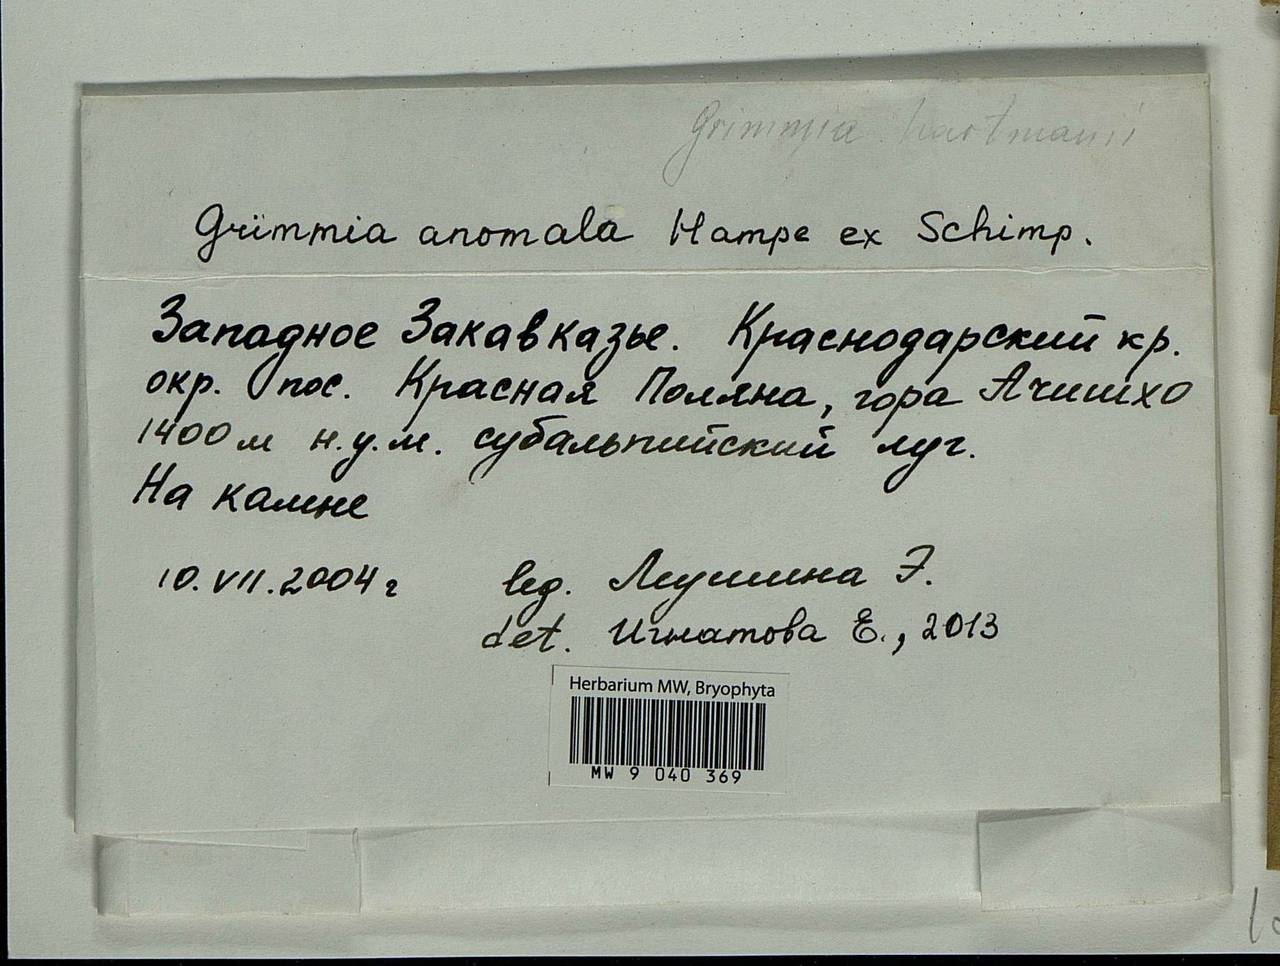 Grimmia hartmanii
Grimmia anomala Hampe ex Schimp.
Западное Закавказье. Краснодарский кр.
окр. пос. Красная Поляна, гора Ачишхо
1400 м н.у.м. субальпийский луг.
На камне
10.VII.2004 г leg. Леушина Э.
det. Игнатова Е., 2013
Herbarium MW, Bryophyta
MW 9 040 369